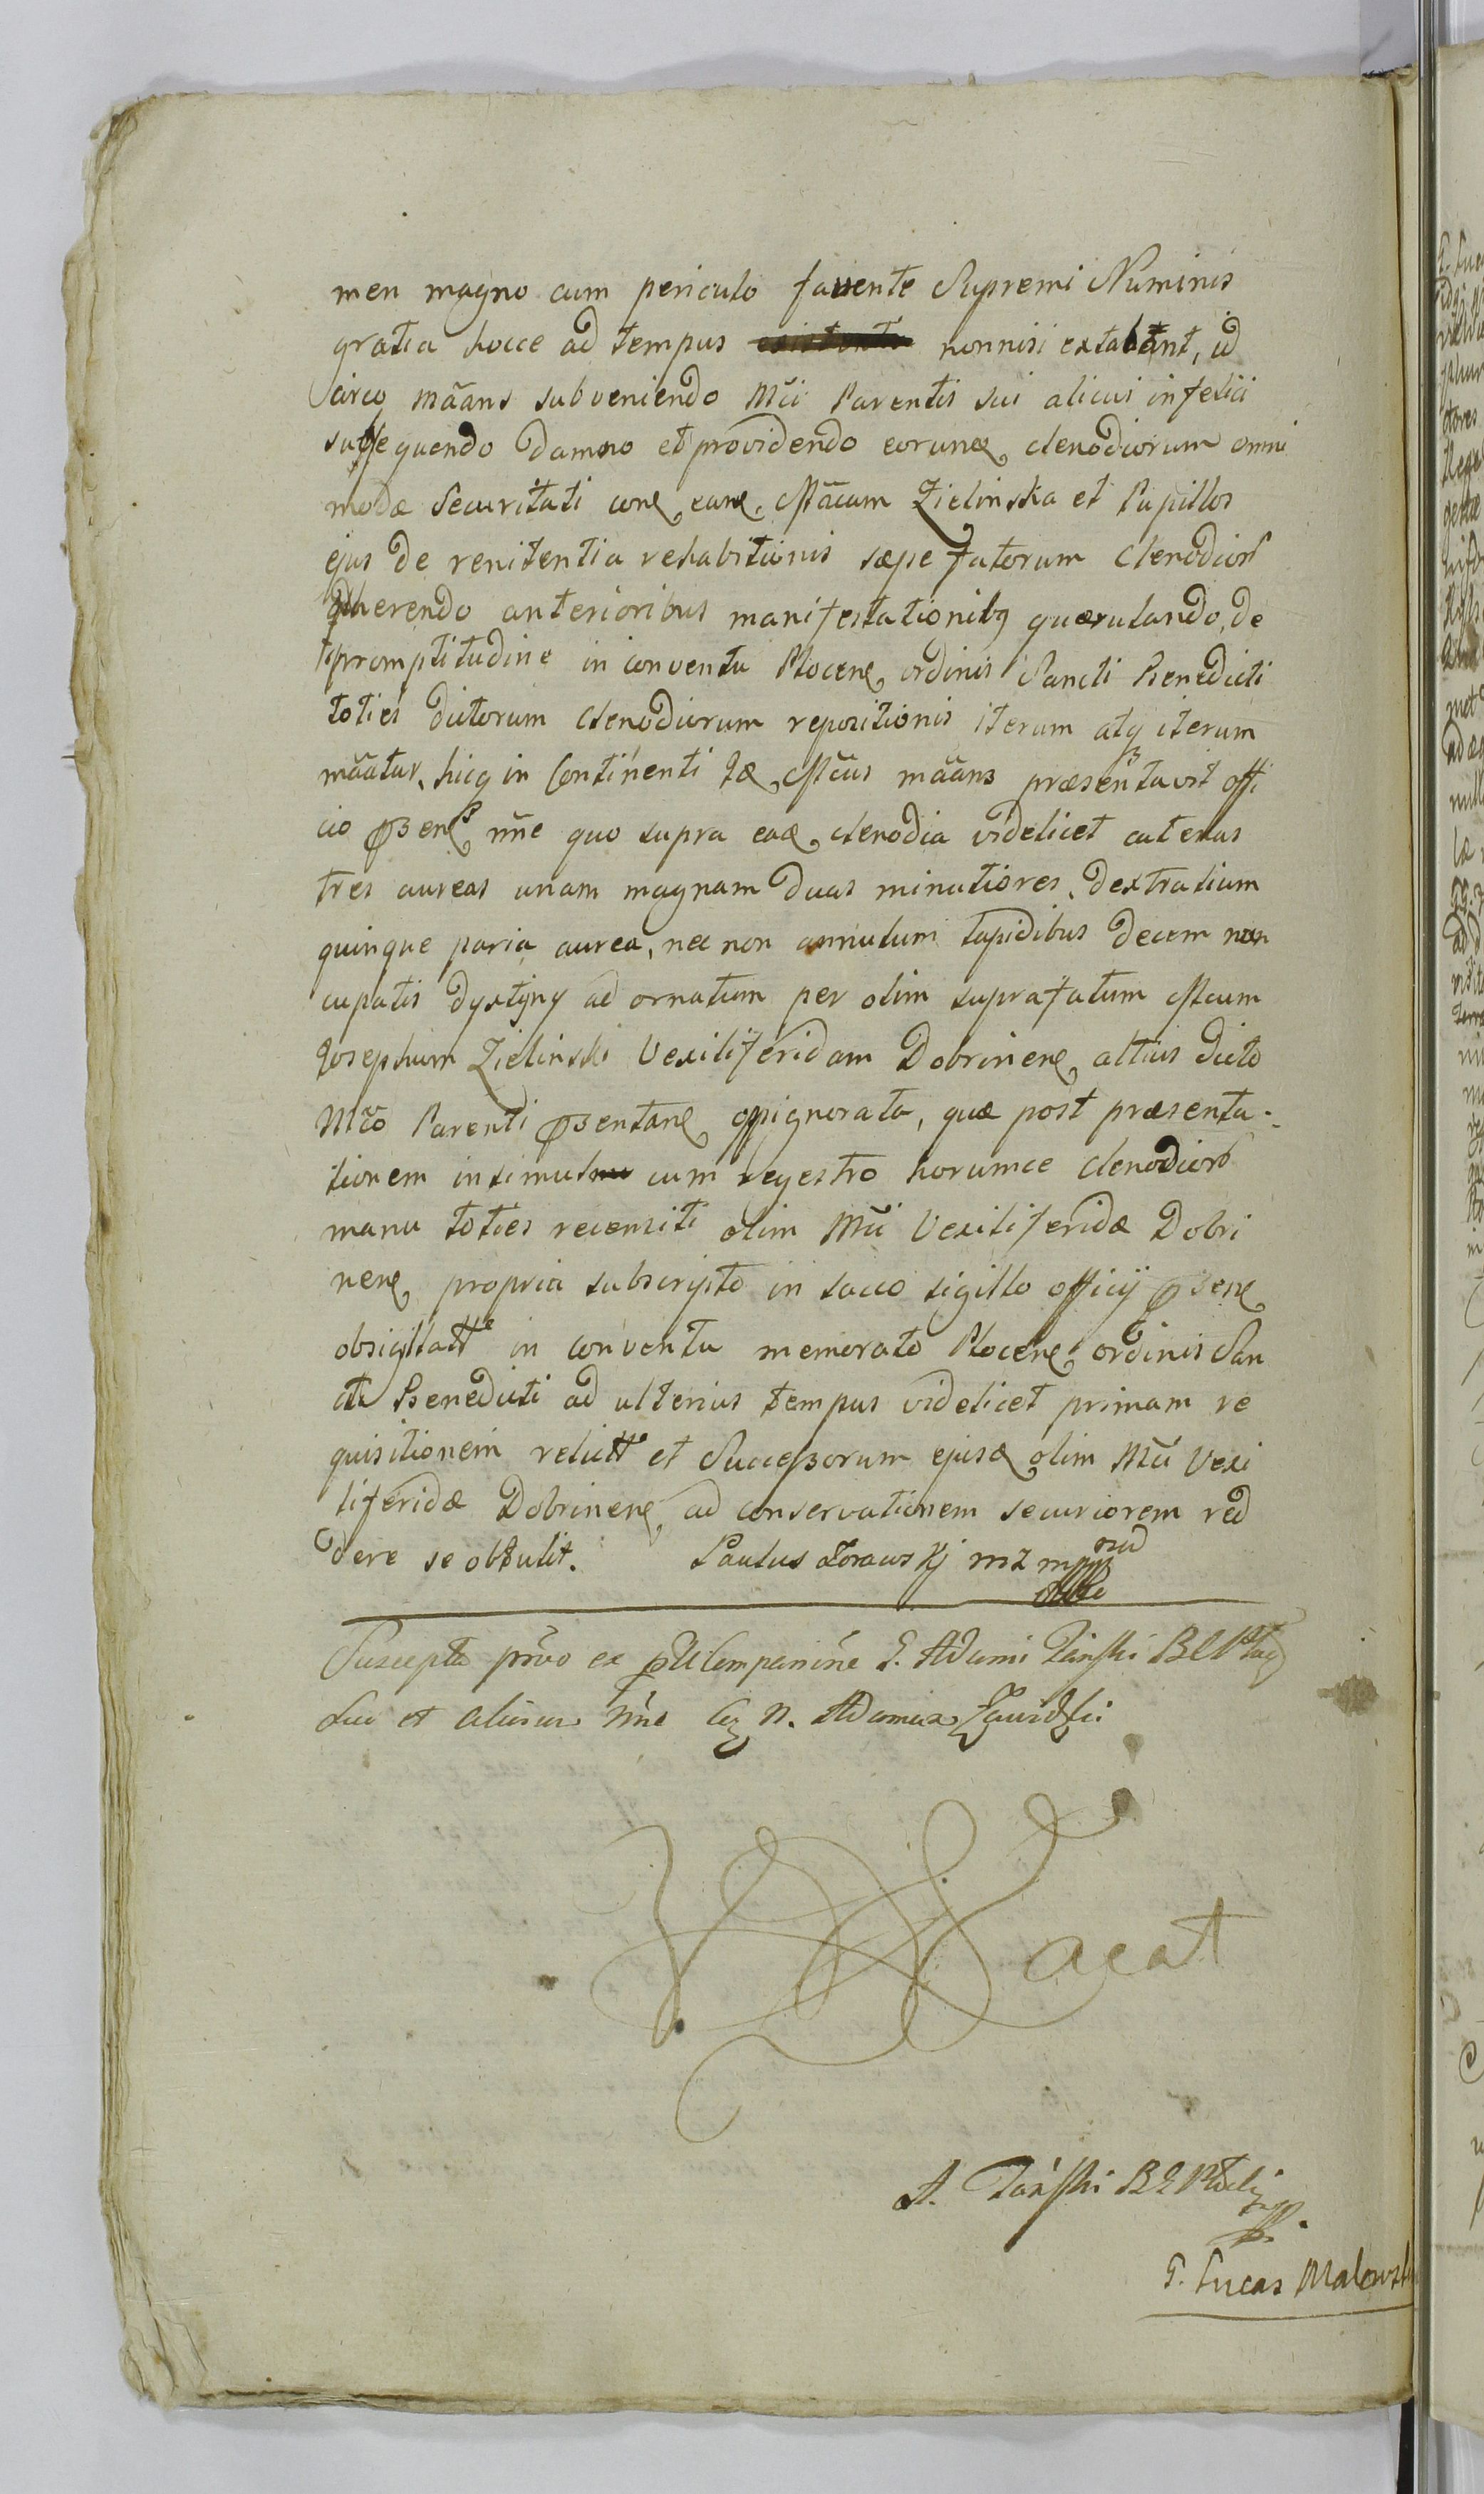 men magno cum periculo favente Supremi Numinis
gratia hocce ad tempus nonnisi extabant, id
circo mãans subveniendo Mci Parentis sui alicui infelici
subsequendo damno et providendo eorunq clenodiorum omni
modæ Securitati conq eanq Mãcam Zielinska et Pupillos
ejus de renitentia rehabitionis sæpe fatorum Clenodior
inhærendo anterioribus manifestationibq quærulando, de
promptitudine in conventu Plocenq ordinis Sancti Benedicti
toties dictorum clenodiorum repositionis iterum atq iterum
mãatur, hicq in Continenti Mcus mãans præsentavit offi
cio nne quo supra ead clenodia videlicet catenas
tres aureas unam magnam duas minutiores, Dextralium
quinque paria aurea, nec non annulum lapidibus decem nun
cupatis dyxtyny ad ornatum per olim suprafatum Mcum
Josephum Zielinski Vexiliferidam Dobrinenq altius dicto
Mco Parenti oppignorata, quæ post præsenta-
tionem insimul cum regestro horumce clenodior
manu toties recensiti olim Mci Vexiliferidæ Dobri
nenq propria subscripto in sacco sigillo officij
obsigillatt in conventu memorato Plocenq ordinis San
cti Benedicti ad ulterius tempus videlicet primam re
quisitionem relictt et Successorum ejusd olim Mci Vexi
liferidæ Dobrinenq ad conservationem securiorem red
dere se obtulit. Paulus Zorawskj mz
Suscepta ex Companine G. Adami Tański
Suo et nne N. Adamus Zawidzki
Vacat
A. Tański
G. Lucas Malowsk